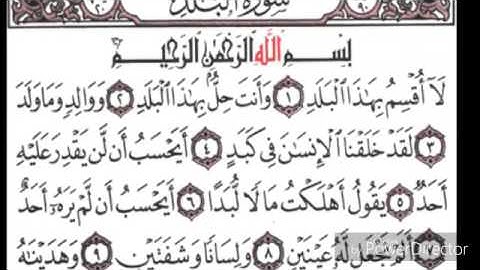 سُورَةُ الْبَلَدِ
بِسْمِ اللَّهِ الرَّحْمَٰنِ الرَّحِيمِ
لَآ أُقْسِمُ بِهَٰذَا الْبَلَدِ ١ وَأَنتَ حِلٌّۢ بِهَٰذَا الْبَلَدِ ٢ وَوَالِدٍ وَمَا وَلَدَ
٣ لَقَدْ خَلَقْنَا الْإِنسَٰنَ فِى كَبَدٍ ٤ أَيَحْسَبُ أَن لَّن يَقْدِرَ عَلَيْهِ
أَحَدٌ ٥ يَقُولُ أَهْلَكْتُ مَالًا لُّبَدًا ٦ أَيَحْسَبُ أَن لَّمْ يَرَهُۥٓ أَحَدٌ
٧ أَلَمْ نَجْعَل لَّهُۥ عَيْنَيْنِ ٨ وَلِسَانًا وَشَفَتَيْنِ ٩ وَهَدَيْنَٰهُ
PowerDirector